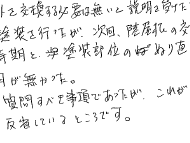 トを交換する必要は無いと説明を受けた
塗装を行いたが、次回、陸屋根の交
長期と、塗装部位の塗り直
円が無かった。
質問すべき事項であったが、これが
反省しているところです。